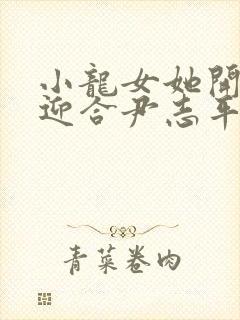 小龍女她開
迎合尹志平
青菜卷肉